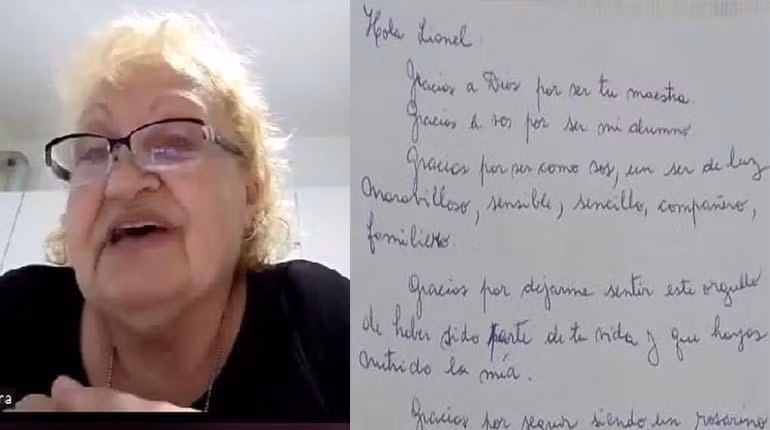 Hola Lionel.
Gracias a Dios por ser tu maestra.
Gracias a vos por ser mi alumno
Gracias por ser como sos, un ser de luz
maravilloso, sensible, sencillo, compañero,
familiero.
Gracias por dejarme sentir este orgullo
de haber sido parte de tu vida y que hayas
nutrido la mía.
Gracias por seguir siendo un rosarino
na